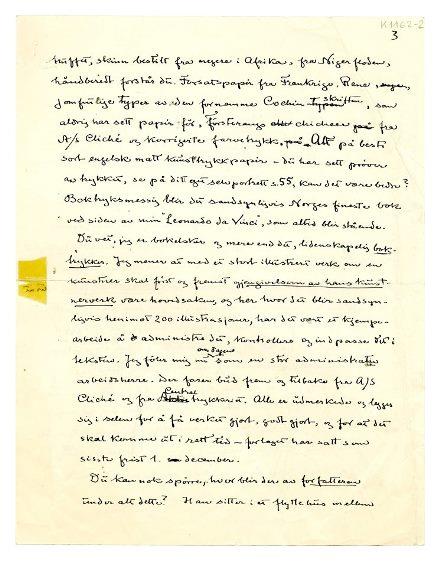 K1162-2
3
truffet, skinn bestilt fra negere i Afrika, fra Nigerfloden,
håndberedt forstår du. Forsatspapir fra Frankrige, Rene,
jomfruelige typer av den fornemme Cochin skriften, som
aldrig har sett papir før, førsterangs clicheer fra
A/S Cliché og korrigerte farvetrykk, Alt på beste
sort engelsk matt kunsttrykkpapir – du har sett prøver
av trykket, se på ditt eget selvportrett s. 55, kan det være bedre?
Boktrykksmessig blir det sandsynligvis Norges fineste bok
ved siden av min "Leonardo da Vinci", som altid blir stående.
Du vet, jeg er bokelsker og mere end det, lidenskapelig bok-
trykker. Jeg mener at med et stort illustrert verk om en
kunstner skal først og fremst gjengivelsen av hans kunst-
nerverk være hovedsaken, og her hvor det blir sandsyn-
ligvis henimot 200 illustrasjoner, har det vært et kjempe-
arbeide å administrere det, kontrollere og indpasse det i
teksten. Jeg føler mig nu som en stor administrativ
arbeidsherre. Der farer bud frem og tilbake fra A/S
Cliché og fra Centraltrykkeriet. Alle er utmerkede og legger
sig i selen for å få verket gjort, godt gjort, og for at det
skal komme ut i rett tid – forlaget har satt som
siste frist 1. december.
Du kan nok spørre, hvor blir der av forfatteren
under alt dette? Han sitter i et flyttehus mellem